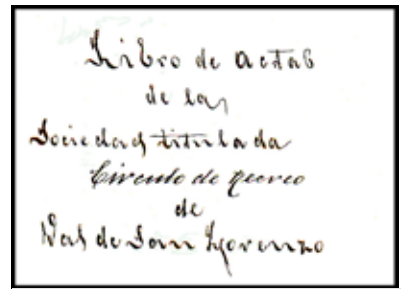 Libro de actas
de la
Sociedad titulada
Circulo de recreo
de
Val de San Lorenzo